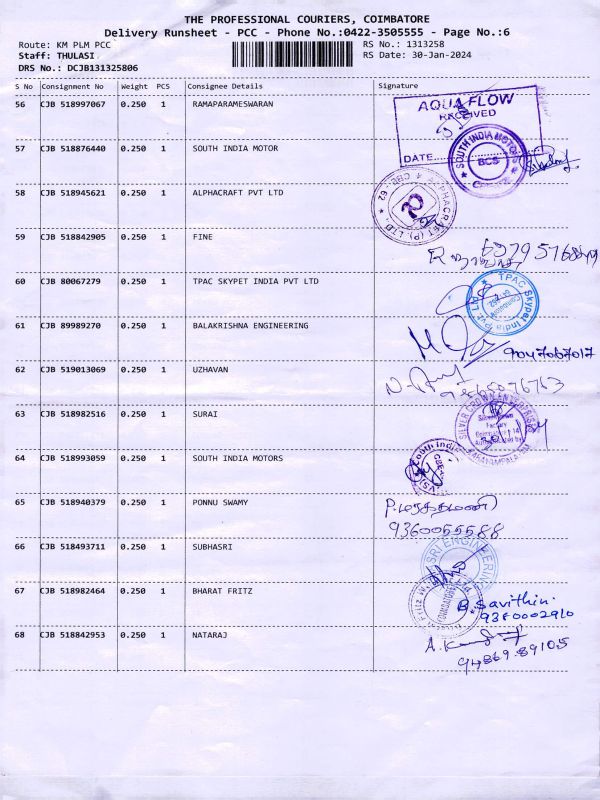 THE PROFESSIONAL COURIERS, COIMBATORE
Delivery Runsheet - PCC - Phone No.:0422-3505555 - Page No.:6
Route: KM PLM PCC RS No.: 1313258
Staff: THULASI RS Date: 30-Jan-2024
DRS No.: DCJB131325806
S No Consignment No Weight PCS Consignee Details Signature
56 CJB 518997067 0.250 1 RAMAPARAMESWARAN
AQUA FLOW
RECEIVED
DATE
57 CJB 518876440 0.250 1 SOUTH INDIA MOTOR
SOUTH INDIA MOTORS
BCS
58 CJB 518945621 0.250 1 ALPHACRAFT PVT LTD
ALPHACRAFT (P) LTD. CBE - 62
59 CJB 518842905 0.250 1 FINE
60 CJB 80067279 0.250 1 TPAC SKYPET INDIA PVT LTD
TPAC Skypet India Pvt. Ltd
61 CJB 89989270 0.250 1 BALAKRISHNA ENGINEERING
9047067017
62 CJB 519013069 0.250 1 UZHAVAN
63 CJB 518982516 0.250 1 SURAI
SILVER CROWN ENTERPRISES
64 CJB 518993059 0.250 1 SOUTH INDIA MOTORS
South India
65 CJB 518940379 0.250 1 PONNU SWAMY
9360055588
66 CJB 518493711 0.250 1 SUBHASRI
SRI ENGINEERING
67 CJB 518982464 0.250 1 BHARAT FRITZ
B. Savithin.
9380002910
68 CJB 518842953 0.250 1 NATARAJ
94869.89105